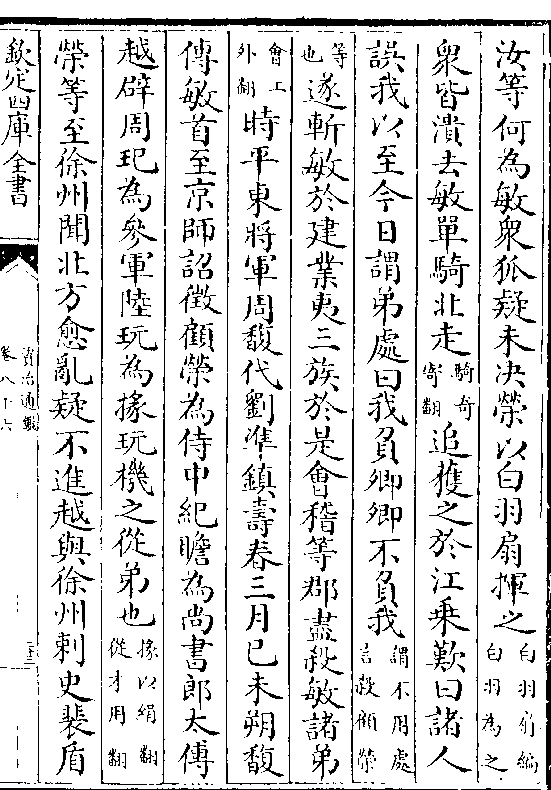 汝等何為敏衆狐疑未決榮以白羽扇揮之白羽扇編白羽為之
衆皆潰去敏單騎北走騎奇寄翻追獲之於江乗歎曰諸人
誤我以至今日謂弟處曰我負卿卿不負我謂不用處言殺顧榮
等也遂斬敏於建業夷三族於是會稽等郡盡殺敏諸弟
會工外翻時平東將軍周馥代劉準鎮壽春三月己未朔馥
傳敏首至京師詔徵顧榮為侍中紀瞻為尚書郎太傅
越辟周玘為參軍陸玩為掾玩機之從弟也掾以絹翻從才用翻
榮等至徐州聞北方愈亂疑不進越與徐州刺史裴盾
欽定四庫全書
資治通鑑
卷八十六